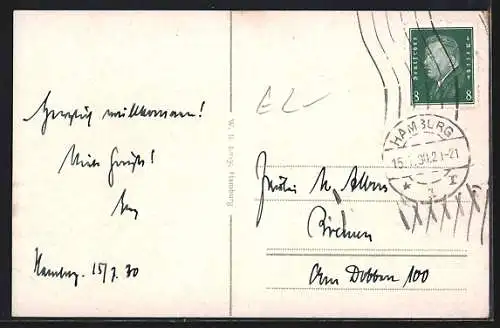 Herzlich willkommen!
Viele Grüße!
Hamburg. 15/7. 30
DEUTSCHES REICH
8 8
HAMBURG
15. 30.21-21
* 1 r
Fräulein M. Albers
Bremen
Am Dobben 100
W. R. Hamburg